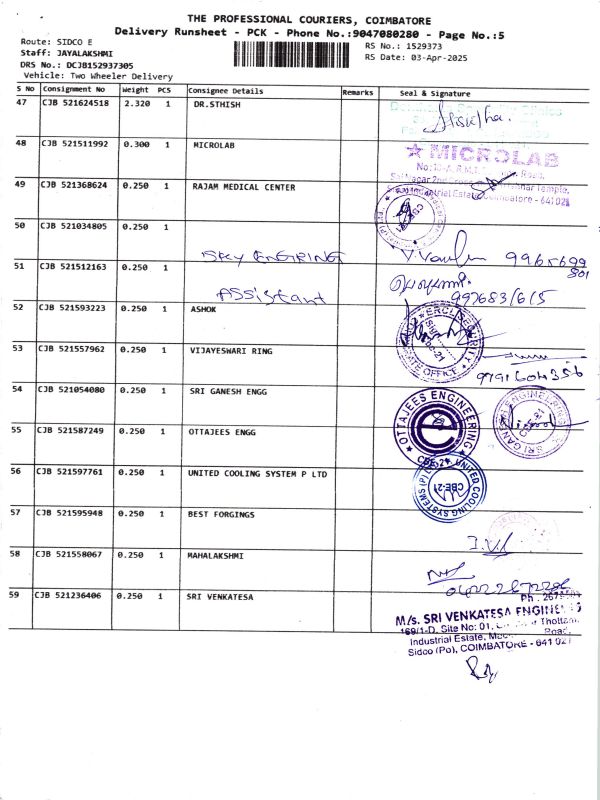 THE PROFESSIONAL COURIERS, COIMBATORE
Delivery Runsheet - PCK - Phone No.:9047080280 - Page No.:5
Route: SIDCO E
RS No.: 1529373
Staff: JAYALAKSHMI
RS Date: 03-Apr-2025
DRS No.: DCJB152937305
Vehicle: Two Wheeler Delivery
S No Consignment No Weight PCS Consignee Details Remarks Seal & Signature
47 CJB 521624518 2.320 1 DR.STHISH
48 CJB 521511992 0.300 1 MICROLAB
★ MICROLAB
Industrial Estate, Coimbatore - 641 021
49 CJB 521368624 0.250 1 RAJAM MEDICAL CENTER
50 CJB 521034805 0.250 1
SKY ENGIRING 9965699
801
51 CJB 521512163 0.250 1
Assistant 997683/6/5
52 CJB 521593223 0.250 1 ASHOK
53 CJB 521557962 0.250 1 VIJAYESWARI RING
9791604356
54 CJB 521054080 0.250 1 SRI GANESH ENGG
SRI GANESH ENGINEERING
CBE-21
55 CJB 521587249 0.250 1 OTTAJEES ENGG
OTTAJEES ENGINEERING
CBE-21
56 CJB 521597761 0.250 1 UNITED COOLING SYSTEM P LTD
UNITED COOLING SYSTEMS (P) 
CBE-21
57 CJB 521595948 0.250 1 BEST FORGINGS
58 CJB 521558067 0.250 1 MAHALAKSHMI
59 CJB 521236406 0.250 1 SRI VENKATESA
M/s. SRI VENKATESA
169/1-D, Site No: 01, Thottam
Industrial Estate, Road,
Sidco (Po), COIMBATORE - 641 021